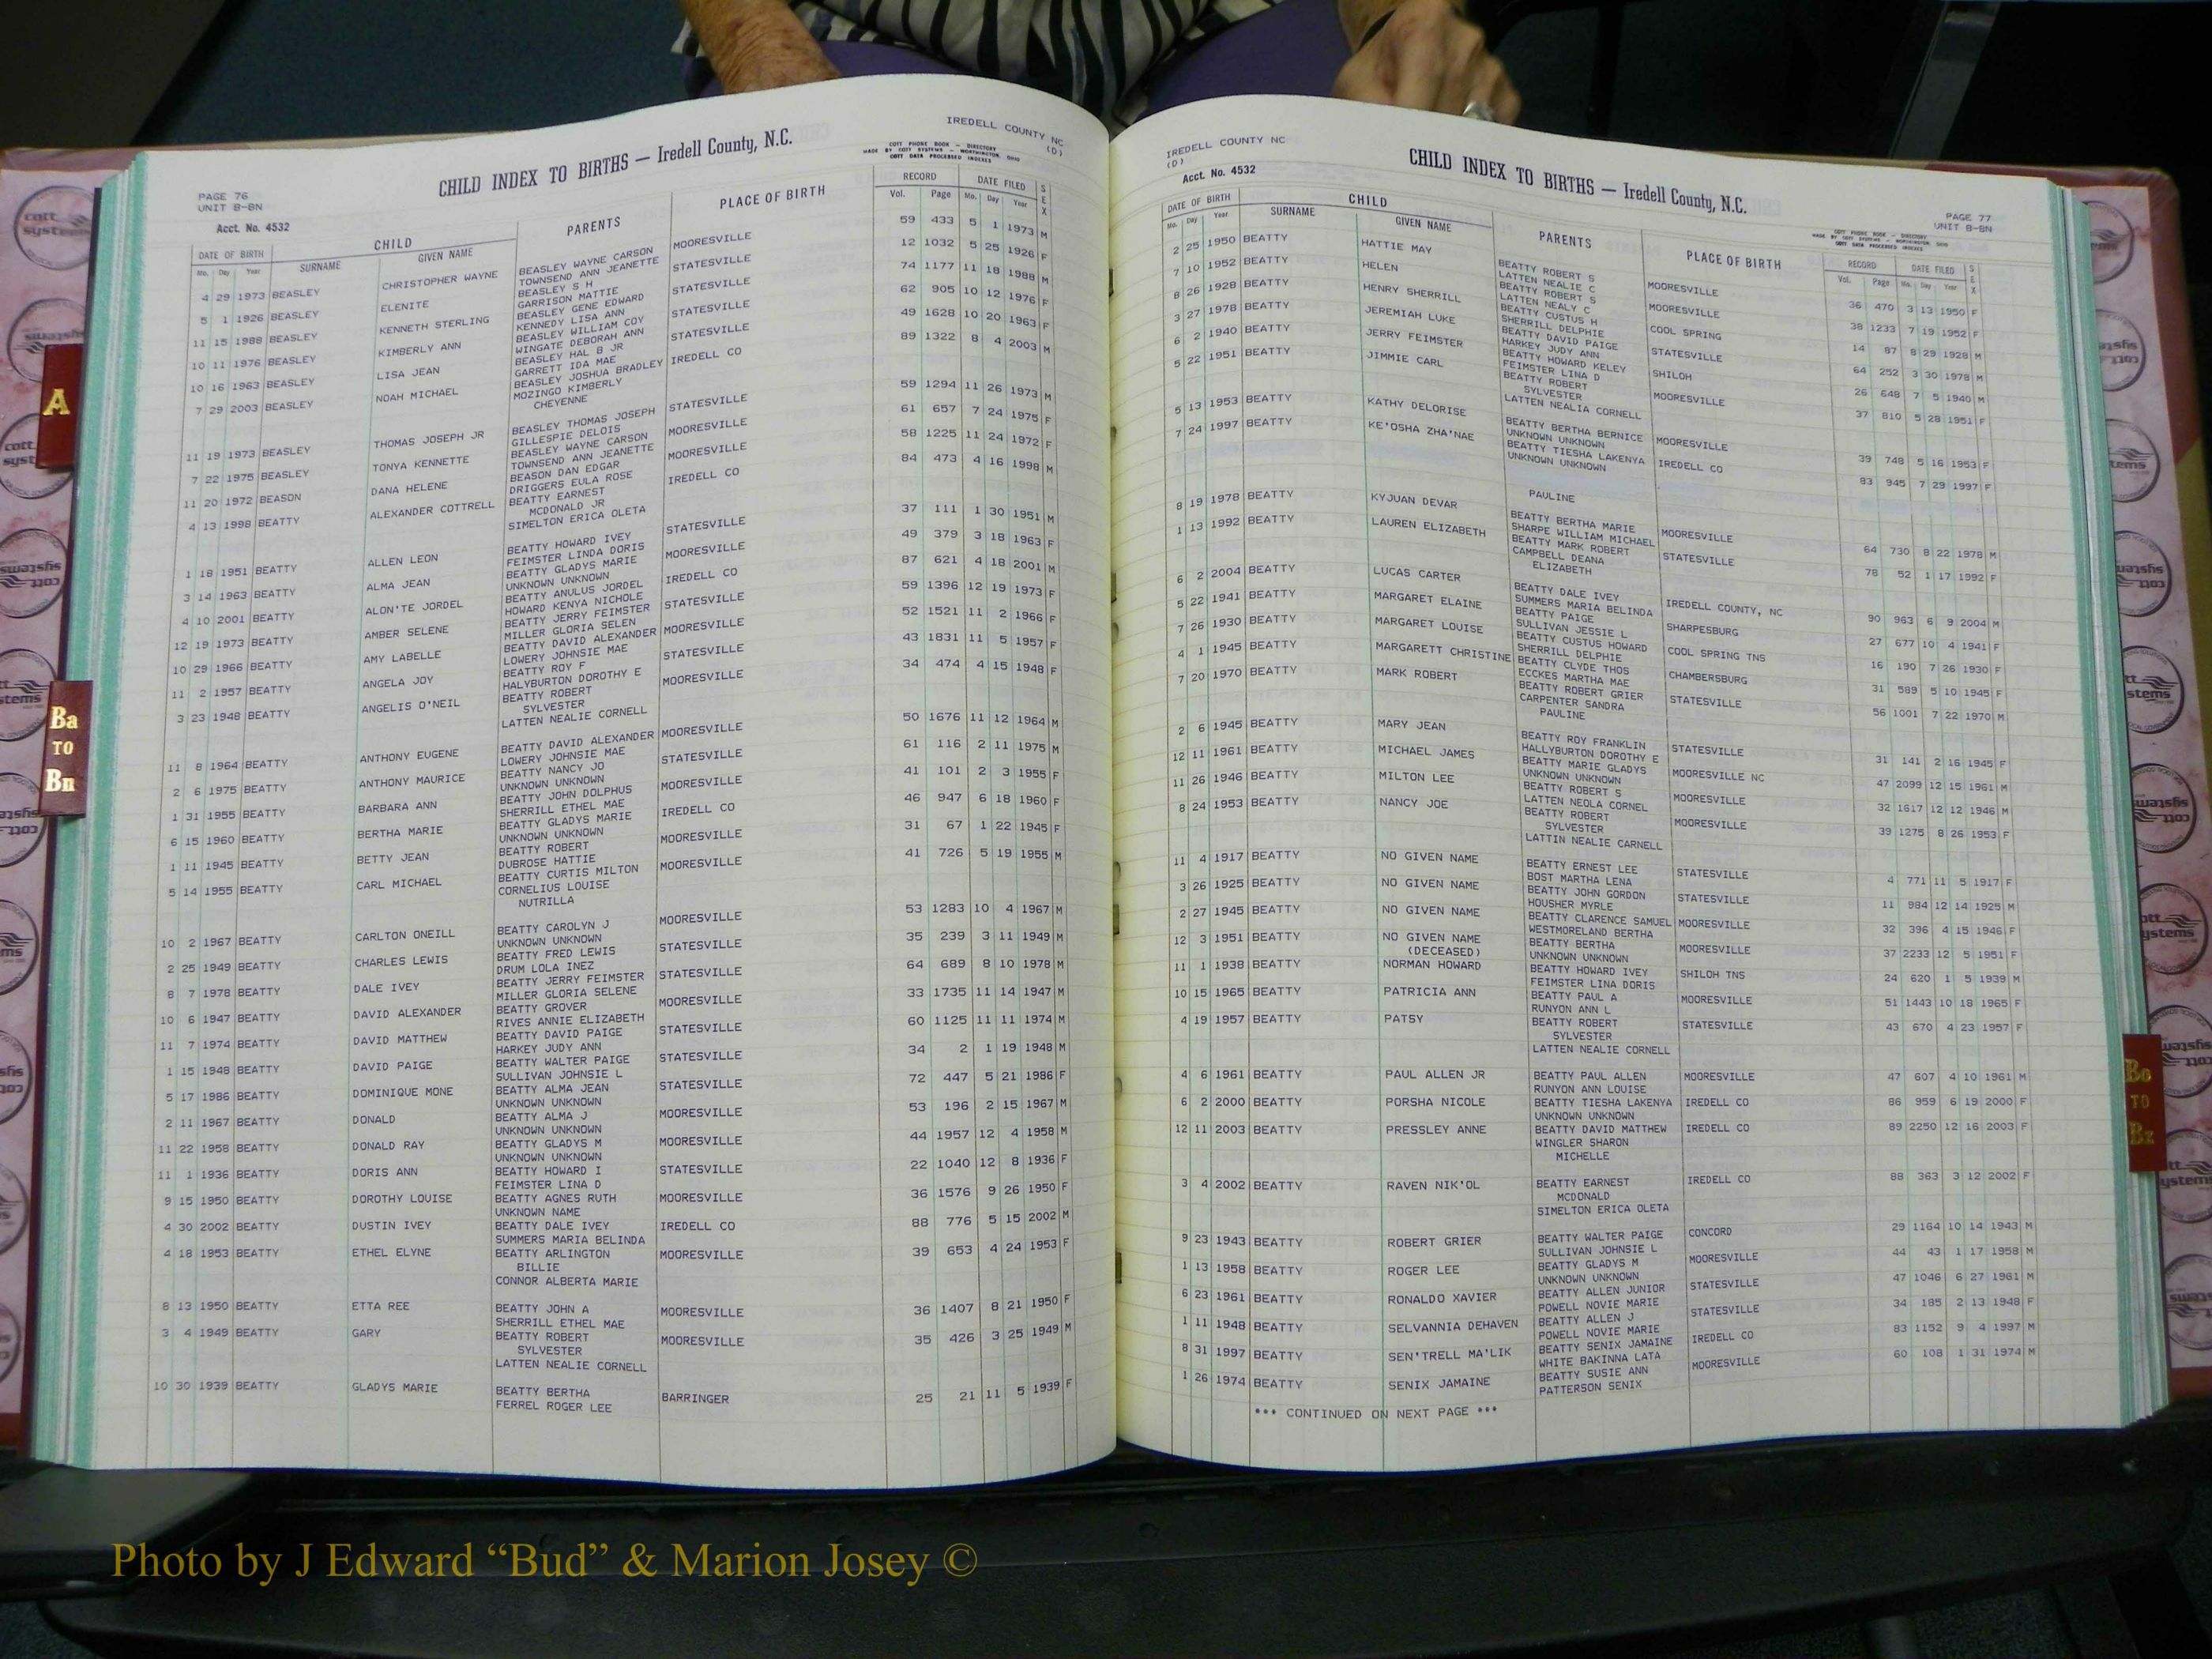 IREDELL COUNTY NC
(D)
CHILD INDEX TO BIRTHS — Iredell County, N.C.
COTT PHONE BOOK - DIRECTORY
MADE BY COTT SYSTEMS - WORTHINGTON, OHIO
COTT DATA PROCESSED INDEXES
PAGE 76
UNIT B-BN
Acct. No. 4532
DATE OF BIRTH CHILD PARENTS PLACE OF BIRTH RECORD DATE FILED SEX
Mo. Day Year SURNAME GIVEN NAME Vol. Page Mo. Day Year
4 29 1973 BEASLEY CHRISTOPHER WAYNE BEASLEY WAYNE CARSON MOORESVILLE 59 433 5 1 1973 M
TOWNSEND ANN JEANETTE
5 1 1926 BEASLEY ELENITE BEASLEY S H STATESVILLE 12 1032 5 25 1926 F
GARRISON MATTIE
11 15 1988 BEASLEY KENNETH STERLING BEASLEY GENE EDWARD STATESVILLE 74 1177 11 18 1988 M
KENNEDY LISA ANN
10 11 1976 BEASLEY KIMBERLY ANN BEASLEY WILLIAM COY STATESVILLE 62 905 10 12 1976 F
WINGATE DEBORAH ANN
10 16 1963 BEASLEY LISA JEAN BEASLEY HAL B JR STATESVILLE 49 1628 10 20 1963 F
GARRETT IDA MAE
7 29 2003 BEASLEY NOAH MICHAEL BEASLEY JOSHUA BRADLEY IREDELL CO 89 1322 8 4 2003 M
MOZINGO KIMBERLY
CHEYENNE
11 19 1973 BEASLEY THOMAS JOSEPH JR BEASLEY THOMAS JOSEPH STATESVILLE 59 1294 11 26 1973 M
GILLESPIE DELOIS
7 22 1975 BEASLEY TONYA KENNETTE BEASLEY WAYNE CARSON MOORESVILLE 61 657 7 24 1975 F
TOWNSEND ANN JEANETTE
11 20 1972 BEASON DANA HELENE BEASON DAN EDGAR MOORESVILLE 58 1225 11 24 1972 F
DRIGGERS EULA ROSE
4 13 1998 BEATTY ALEXANDER COTTRELL BEATTY EARNEST IREDELL CO 84 473 4 16 1998 M
MCDONALD JR
SIMELTON ERICA OLETA
1 18 1951 BEATTY ALLEN LEON BEATTY HOWARD IVEY STATESVILLE 37 111 1 30 1951 M
FEIMSTER LINDA DORIS
3 14 1963 BEATTY ALMA JEAN BEATTY GLADYS MARIE MOORESVILLE 49 379 3 18 1963 F
UNKNOWN UNKNOWN
4 10 2001 BEATTY ALON'TE JORDEL BEATTY ANULUS JORDEL IREDELL CO 87 621 4 18 2001 M
HOWARD KENYA NICHOLE
12 19 1973 BEATTY AMBER SELENE BEATTY JERRY FEIMSTER STATESVILLE 59 1396 12 19 1973 F
MILLER GLORIA SELEN
10 29 1966 BEATTY AMY LABELLE BEATTY DAVID ALEXANDER MOORESVILLE 52 1521 11 2 1966 F
LOWERY JOHNSIE MAE
11 2 1957 BEATTY ANGELA JOY BEATTY ROY F STATESVILLE 43 1831 11 5 1957 F
HALYBURTON DOROTHY E
3 23 1948 BEATTY ANGELIS O'NEIL BEATTY ROBERT MOORESVILLE 34 474 4 15 1948 F
SYLVESTER
LATTEN NEALIE CORNELL
11 8 1964 BEATTY ANTHONY EUGENE BEATTY DAVID ALEXANDER MOORESVILLE 50 1676 11 12 1964 M
LOWERY JOHNSIE MAE
2 6 1975 BEATTY ANTHONY MAURICE BEATTY NANCY JO STATESVILLE 61 116 2 11 1975 M
UNKNOWN UNKNOWN
1 31 1955 BEATTY BARBARA ANN BEATTY JOHN DOLPHUS MOORESVILLE 41 101 2 3 1955 F
SHERRILL ETHEL MAE
6 15 1960 BEATTY BERTHA MARIE BEATTY GLADYS MARIE IREDELL CO 46 947 6 18 1960 F
UNKNOWN UNKNOWN
1 11 1945 BEATTY BETTY JEAN BEATTY ROBERT MOORESVILLE 31 67 1 22 1945 F
DUBROSE HATTIE
5 14 1955 BEATTY CARL MICHAEL BEATTY CURTIS MILTON MOORESVILLE 41 726 5 19 1955 M
CORNELIUS LOUISE
NUTRILLA
10 2 1967 BEATTY CARLTON ONEILL BEATTY CAROLYN J MOORESVILLE 53 1283 10 4 1967 M
UNKNOWN UNKNOWN
2 25 1949 BEATTY CHARLES LEWIS BEATTY FRED LEWIS STATESVILLE 35 239 3 11 1949 M
DRUM LOLA INEZ
8 7 1978 BEATTY DALE IVEY BEATTY JERRY FEIMSTER STATESVILLE 64 689 8 10 1978 M
MILLER GLORIA SELENE
10 6 1947 BEATTY DAVID ALEXANDER BEATTY GROVER MOORESVILLE 33 1735 11 14 1947 M
RIVES ANNIE ELIZABETH
11 7 1974 BEATTY DAVID MATTHEW BEATTY DAVID PAIGE STATESVILLE 60 1125 11 11 1974 M
HARKEY JUDY ANN
1 15 1948 BEATTY DAVID PAIGE BEATTY WALTER PAIGE STATESVILLE 34 2 1 19 1948 M
SULLIVAN JOHNSIE L
5 17 1986 BEATTY DOMINIQUE MONE BEATTY ALMA JEAN STATESVILLE 72 447 5 21 1986 F
UNKNOWN UNKNOWN
2 11 1967 BEATTY DONALD BEATTY ALMA J MOORESVILLE 53 196 2 15 1967 M
UNKNOWN UNKNOWN
11 22 1958 BEATTY DONALD RAY BEATTY GLADYS M MOORESVILLE 44 1957 12 4 1958 M
UNKNOWN UNKNOWN
11 1 1936 BEATTY DORIS ANN BEATTY HOWARD I STATESVILLE 22 1040 12 8 1936 F
FEIMSTER LINA D
9 15 1950 BEATTY DOROTHY LOUISE BEATTY AGNES RUTH MOORESVILLE 36 1576 9 26 1950 F
UNKNOWN NAME
4 30 2002 BEATTY DUSTIN IVEY BEATTY DALE IVEY IREDELL CO 88 776 5 15 2002 M
SUMMERS MARIA BELINDA
4 18 1953 BEATTY ETHEL ELYNE BEATTY ARLINGTON MOORESVILLE 39 653 4 24 1953 F
BILLIE
CONNOR ALBERTA MARIE
8 13 1950 BEATTY ETTA REE BEATTY JOHN A MOORESVILLE 36 1407 8 21 1950 F
SHERRILL ETHEL MAE
3 4 1949 BEATTY GARY BEATTY ROBERT MOORESVILLE 35 426 3 25 1949 M
SYLVESTER
LATTEN NEALIE CORNELL
10 30 1939 BEATTY GLADYS MARIE BEATTY BERTHA BARRINGER 25 21 11 5 1939 F
FERREL ROGER LEE
IREDELL COUNTY NC
(D)
Acct. No. 4532
CHILD INDEX TO BIRTHS — Iredell County, N.C.
PAGE 77
UNIT B-BN
COTT PHONE BOOK - DIRECTORY
MADE BY COTT SYSTEMS - WORTHINGTON, OHIO
COTT DATA PROCESSED INDEXES
DATE OF BIRTH CHILD PARENTS PLACE OF BIRTH RECORD DATE FILED SEX
Mo. Day Year SURNAME GIVEN NAME Vol. Page Mo. Day Year
2 25 1950 BEATTY HATTIE MAY BEATTY ROBERT S MOORESVILLE 36 470 3 13 1950 F
LATTEN NEALIE C
7 10 1952 BEATTY HELEN BEATTY ROBERT S MOORESVILLE 38 1233 7 19 1952 F
LATTEN NEALY C
8 26 1928 BEATTY HENRY SHERRILL BEATTY CUSTUS H COOL SPRING 14 87 8 29 1928 M
SHERRILL DELPHIE
3 27 1978 BEATTY JEREMIAH LUKE BEATTY DAVID PAIGE STATESVILLE 64 252 3 30 1978 M
HARKEY JUDY ANN
6 2 1940 BEATTY JERRY FEIMSTER BEATTY HOWARD KELEY SHILOH 26 648 7 5 1940 M
FEIMSTER LINA D
5 22 1951 BEATTY JIMMIE CARL BEATTY ROBERT MOORESVILLE 37 810 5 28 1951 F
SYLVESTER
LATTEN NEALIA CORNELL
5 13 1953 BEATTY KATHY DELORISE BEATTY BERTHA BERNICE MOORESVILLE 39 748 5 16 1953 F
UNKNOWN UNKNOWN
7 24 1997 BEATTY KE'OSHA ZHA'NAE BEATTY TIESHA LAKENYA IREDELL CO 83 945 7 29 1997 F
UNKNOWN UNKNOWN
PAULINE
8 19 1978 BEATTY KYJUAN DEVAR BEATTY BERTHA MARIE MOORESVILLE 64 730 8 22 1978 M
SHARPE WILLIAM MICHAEL
1 13 1992 BEATTY LAUREN ELIZABETH BEATTY MARK ROBERT STATESVILLE 78 52 1 17 1992 F
CAMPBELL DEANA
ELIZABETH
6 2 2004 BEATTY LUCAS CARTER BEATTY DALE IVEY IREDELL COUNTY, NC 90 963 6 9 2004 M
SUMMERS MARIA BELINDA
5 22 1941 BEATTY MARGARET ELAINE BEATTY PAIGE SHARPESBURG 27 677 10 4 1941 F
SULLIVAN JESSIE L
7 26 1930 BEATTY MARGARET LOUISE BEATTY CUSTUS HOWARD COOL SPRING TNS 16 190 7 26 1930 F
SHERRILL DELPHIE
4 1 1945 BEATTY MARGARETT CHRISTINE BEATTY CLYDE THOS CHAMBERSBURG 31 589 5 10 1945 F
ECCKES MARTHA MAE
7 20 1970 BEATTY MARK ROBERT BEATTY ROBERT GRIER STATESVILLE 56 1001 7 22 1970 M
CARPENTER SANDRA
PAULINE
2 6 1945 BEATTY MARY JEAN BEATTY ROY FRANKLIN STATESVILLE 31 141 2 16 1945 F
HALLYBURTON DOROTHY E
12 11 1961 BEATTY MICHAEL JAMES BEATTY MARIE GLADYS MOORESVILLE NC 47 2099 12 15 1961 M
UNKNOWN UNKNOWN
11 26 1946 BEATTY MILTON LEE BEATTY ROBERT S MOORESVILLE 32 1617 12 12 1946 M
LATTEN NEOLA CORNEL
8 24 1953 BEATTY NANCY JOE BEATTY ROBERT MOORESVILLE 39 1275 8 26 1953 F
SYLVESTER
LATTIN NEALIE CARNELL
11 4 1917 BEATTY NO GIVEN NAME BEATTY ERNEST LEE STATESVILLE 4 771 11 5 1917 F
BOST MARTHA LENA
3 26 1925 BEATTY NO GIVEN NAME BEATTY JOHN GORDON STATESVILLE 11 984 12 14 1925 M
HOUSHER MYRLE
2 27 1945 BEATTY NO GIVEN NAME BEATTY CLARENCE SAMUEL MOORESVILLE 32 396 4 15 1946 F
WESTMORELAND BERTHA
12 3 1951 BEATTY NO GIVEN NAME BEATTY BERTHA MOORESVILLE 37 2233 12 5 1951 F
(DECEASED) UNKNOWN UNKNOWN
11 1 1938 BEATTY NORMAN HOWARD BEATTY HOWARD IVEY SHILOH TNS 24 620 1 5 1939 M
FEIMSTER LINA DORIS
10 15 1965 BEATTY PATRICIA ANN BEATTY PAUL A MOORESVILLE 51 1443 10 18 1965 F
RUNYON ANN L
4 19 1957 BEATTY PATSY BEATTY ROBERT STATESVILLE 43 670 4 23 1957 F
SYLVESTER
LATTEN NEALIE CORNELL
4 6 1961 BEATTY PAUL ALLEN JR BEATTY PAUL ALLEN MOORESVILLE 47 607 4 10 1961 M
RUNYON ANN LOUISE
6 2 2000 BEATTY PORSHA NICOLE BEATTY TIESHA LAKENYA IREDELL CO 86 959 6 19 2000 F
UNKNOWN UNKNOWN
12 11 2003 BEATTY PRESSLEY ANNE BEATTY DAVID MATTHEW IREDELL CO 89 2250 12 16 2003 F
WINGLER SHARON
MICHELLE
3 4 2002 BEATTY RAVEN NIK'OL BEATTY EARNEST IREDELL CO 88 363 3 12 2002 F
MCDONALD
SIMELTON ERICA OLETA
9 23 1943 BEATTY ROBERT GRIER BEATTY WALTER PAIGE CONCORD 29 1164 10 14 1943 M
SULLIVAN JOHNSIE L
1 13 1958 BEATTY ROGER LEE BEATTY GLADYS M MOORESVILLE 44 43 1 17 1958 M
UNKNOWN UNKNOWN
6 23 1961 BEATTY RONALDO XAVIER BEATTY ALLEN JUNIOR STATESVILLE 47 1046 6 27 1961 M
POWELL NOVIE MARIE
1 11 1948 BEATTY SELVANNIA DEHAVEN BEATTY ALLEN J STATESVILLE 34 185 2 13 1948 F
POWELL NOVIE MARIE
8 31 1997 BEATTY SEN'TRELL MA'LIK BEATTY SENIX JAMAINE IREDELL CO 83 1152 9 4 1997 M
WHITE BAKINNA LATA
1 26 1974 BEATTY SENIX JAMAINE BEATTY SUSIE ANN MOORESVILLE 60 108 1 31 1974 M
PATTERSON SENIX
*** CONTINUED ON NEXT PAGE ***
A
Ba
TO
Bn
Bo
TO
Bz
cott
systems
Photo by J Edward “Bud” & Marion Josey ©